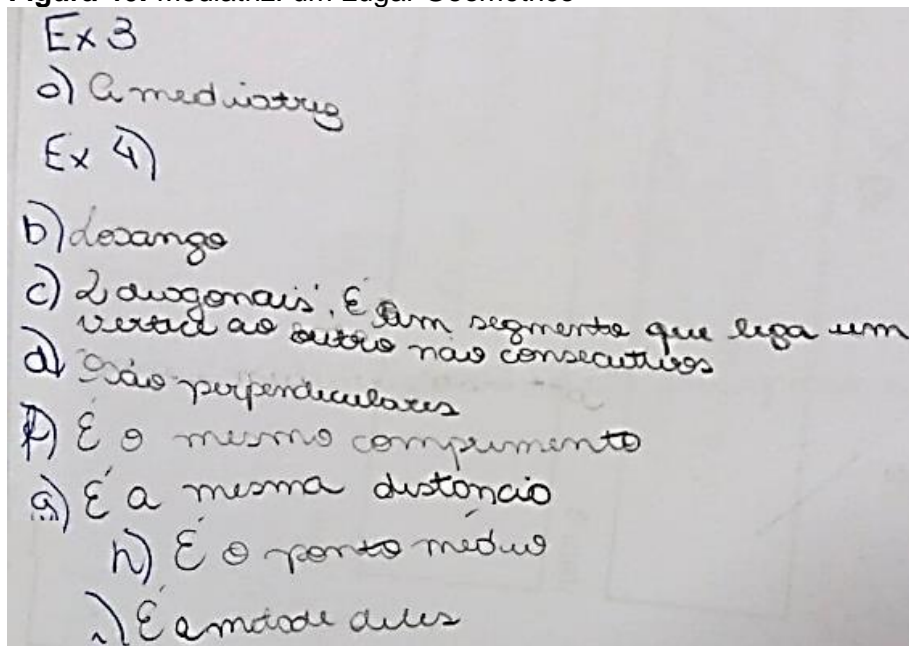 Figura 10. Mediatriz: um Lugar Geométrico
Ex 3
a) A mediatriz
Ex 4)
b) losango
c) 2 diagonais, É um segmento que liga um
vertice ao outro não consecutivos
d) São perpendiculares
f) É o mesmo comprimento
g) É a mesma distância
h) É o ponto médio
i) É a metade deles